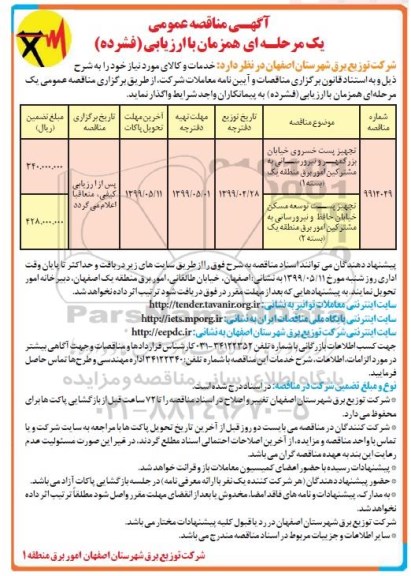 آگهــی مناقصه عمومی
یک مرحلــه ای همزمان با ارزیابی (فشرده)
شرکت توزیع برق شهرستان اصفهان در نظر دارد: خدمات و کالای مورد نیاز خود را به شرح
ذیل و به استناد قانون برگزاری مناقصات و آیین نامه معاملات شرکت، از طریق برگزاری مناقصه عمومی یک
مرحله‌ای همزمان با ارزیابی (فشرده) به پیمانکاران واجد شرایط واگذار نماید.
شماره مناقصه
موضوع مناقصه
تاریخ توزیع دفترچه
مهلت تهیه دفترچه
آخرین مهلت تحویل پاکات
تاریخ برگزاری مناقصه
مبلغ تضمین (ریال)
۹۹۱۲۰۲۹
تجهیز پست خسروی خیابان
بزرگمهـــر و نیرورســـانی به
مشترکین امور برق منطقه یک
(بسته ۱)
۱۳۹۹/۰۴/۲۸
۱۳۹۹/۰۵/۰۱
۱۳۹۹/۰۵/۱۱
پس از ارزیابی
کیفی، متعاقبا
اعلام می گردد
۳۴۰.۰۰۰.۰۰۰
تجهیز پست توسعه مسکن
خیابان حافظ و نیرورسانی به
مشترکین امور برق منطقه یک
(بسته ۲)
۴۲۸.۰۰۰.۰۰۰
پیشنهاد دهندگان می توانند اسناد مناقصه به شرح فوق را از طریق سایت های زیر دریافت و حداکثر تا پایان وقت
اداری روز شنبه مورخ ۱۳۹۹/۰۵/۱۱ به نشانی: اصفهان، خیابان طالقانی، امور برق منطقه یک اصفهان، دبیرخانه امور
تحویل نمایند. به پیشنهادهایی که بعد از مهلت مقرر در فوق دریافت شود ترتیب اثر داده نخواهد شد.
سایت اینترنتی معاملات توانیر به نشانی: http://tender.tavanir.org.ir
سایت اینترنتی پایگاه ملی مناقصات ایران به نشانی: http://iets.mporg.ir
سایت اینترنتی شرکت توزیع برق شهرستان اصفهان به نشانی: http://eepdc.ir
جهت کسب اطلاعات بازرگانی با شماره تلفن ۳۴۱۲۲۳۵۲-۰۳۱ کارشناس قراردادها و مناقصات و جهت آگاهی بیشتر
در مورد الزامات، اطلاعات، شرح خدمات این مناقصه با شماره تلفن: ۳۴۱۲۲۳۴۰ اداره مهندسی و طرح‌ها تماس حاصل
فرمایید.
نوع و مبلغ تضمین شرکت در مناقصه: در اسناد درج شده است.
* شرکت توزیع برق شهرستان اصفهان تغییر و اصلاح در اسناد مناقصه را تا ۷۲ ساعت قبل از بازگشایی پاکات ها برای
خود محفوظ می دارد.
* شرکت کنندگان در مناقصه می بایست دو روز قبل از آخرین تاریخ تحویل پاکت ها با مراجعه به سایت شرکت و یا
تماس با واحد مناقصه و مزایده، از آخرین اصلاحات احتمالی اسناد مطلع گردند، در غیر این صورت مسئولیت عدم
رعایت این بند به عهده مناقصه گران می باشد.
* پیشنهادات رسیده با حضور اعضای کمیسیون معاملات باز و قرائت خواهد شد.
* حضور پیشنهاد دهندگان (هر شرکت کننده یک نفر با ارائه معرفی نامه) در جلسه بازگشایی پاکات آزاد می باشد.
* به مدارک، پیشنهادات و نامه های فاقد امضا، مخدوش یا بعد از انقضای مهلت مقرر واصل شود مطلقاً ترتیب اثر داده
نخواهد شد.
* شرکت توزیع برق شهرستان اصفهان در رد یا قبول کلیه پیشنهادات مختار می باشد.
* سایر اطلاعات و جزییات مربوط در اسناد مناقصه مندرج می باشد.
شرکت توزیع برق شهرستان اصفهان امور برق منطقه ۱
پایگاه اطلاع رسانی مناقصه و مزایده
۰۲۱-۸۸۳۴۹۶۷۰-۵